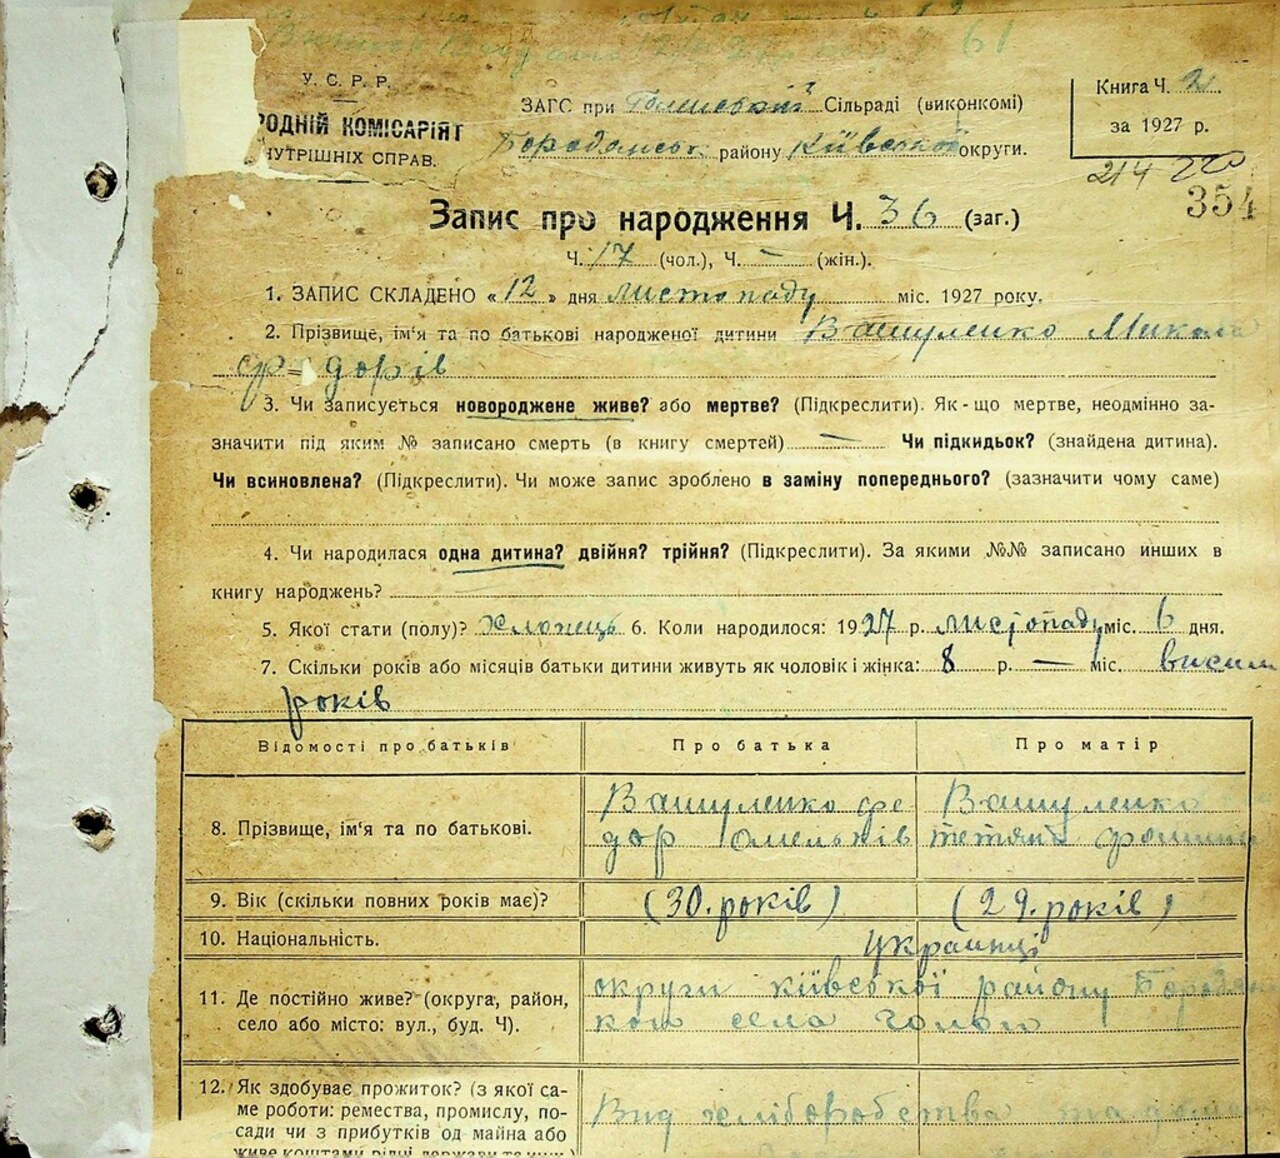 У. С. Р. Р.
РОДНІЙ КОМІСАРІЯТ
НУТРІШНІХ СПРАВ.
ЗАГС при Сільраді (виконкомі)
району Київської округи.
Книга Ч. 2.
за 1927 р.
214 220
354
Запис про народження Ч. 36 (заг.)
Ч. 17 (чол.), Ч. — (жін.).
1. ЗАПИС СКЛАДЕНО «12» дня листопаду міс. 1927 року.
2. Прізвище, ім'я та по батькові народженої дитини Вашуленко Микола
ф= дорів
3. Чи записується новороджене живе? або мертве? (Підкреслити). Як-що мертве, неодмінно за-
значити під яким № записано смерть (в книгу смертей) — Чи підкидьок? (знайдена дитина).
Чи всиновлена? (Підкреслити). Чи може запис зроблено в заміну попереднього? (зазначити чому саме)
4. Чи народилася одна дитина? двійня? трійня? (Підкреслити). За якими №№ записано инших в
книгу народжень?
5. Якої стати (полу)? Хлопець 6. Коли народилося: 1927 р. листопаду міс. 6 дня.
7. Скільки років або місяців батьки дитини живуть як чоловік і жінка: 8 р. — міс.
років
Відомості про батьків
Про батька
Про матір
8. Прізвище, ім'я та по батькові.
Вашуленко Фе
дор Омельків
Вашуленко
тетяна
9. Вік (скільки повних років має)?
(30. років)
(29. років)
10. Національність.
Українці
11. Де постійно живе? (округа, район,
село або місто: вул., буд. Ч).
округи київської району
села
12. Як здобуває прожиток? (з якої са-
ме роботи: ремества, промислу, по-
сади чи з прибутків од майна або
живе коштами рідні, держави та инш.)
Вид хліборобства